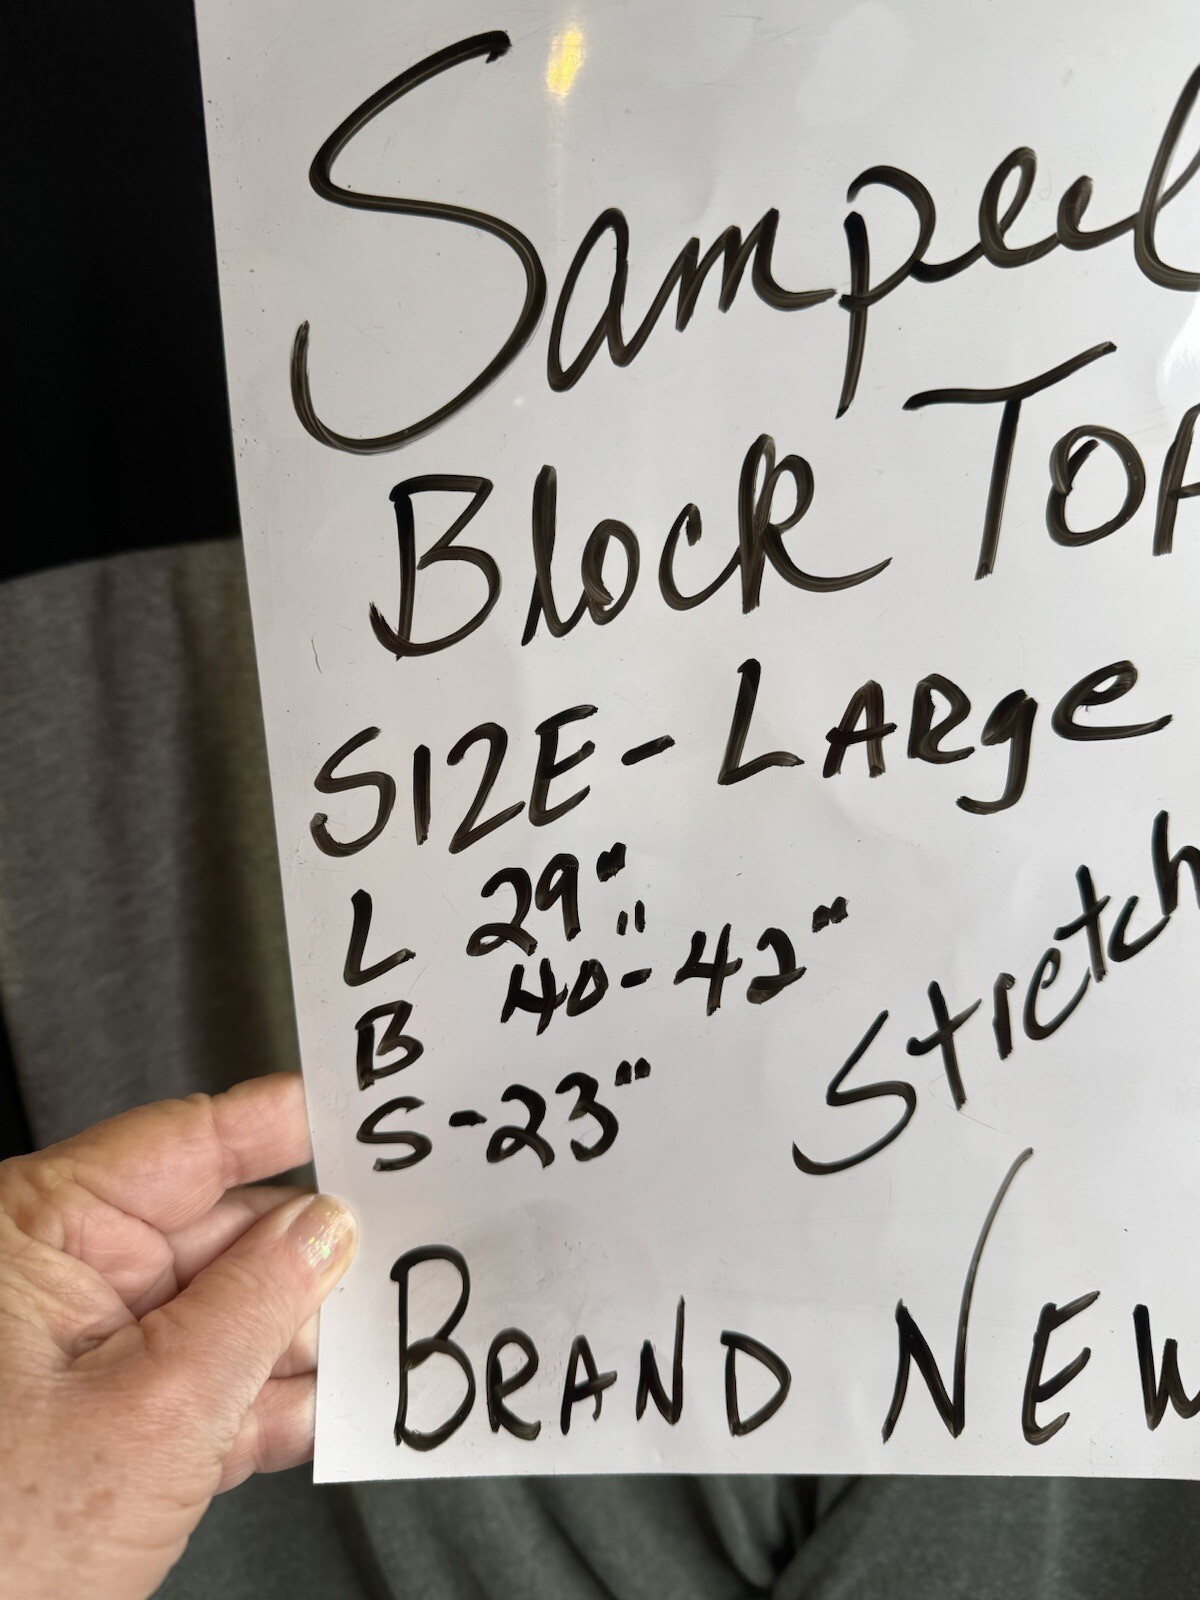 Sampeel
Block TOA
SIZE - LARge
L 29"
B 40"-42"
S-23"
Stretch
BRAND NEW